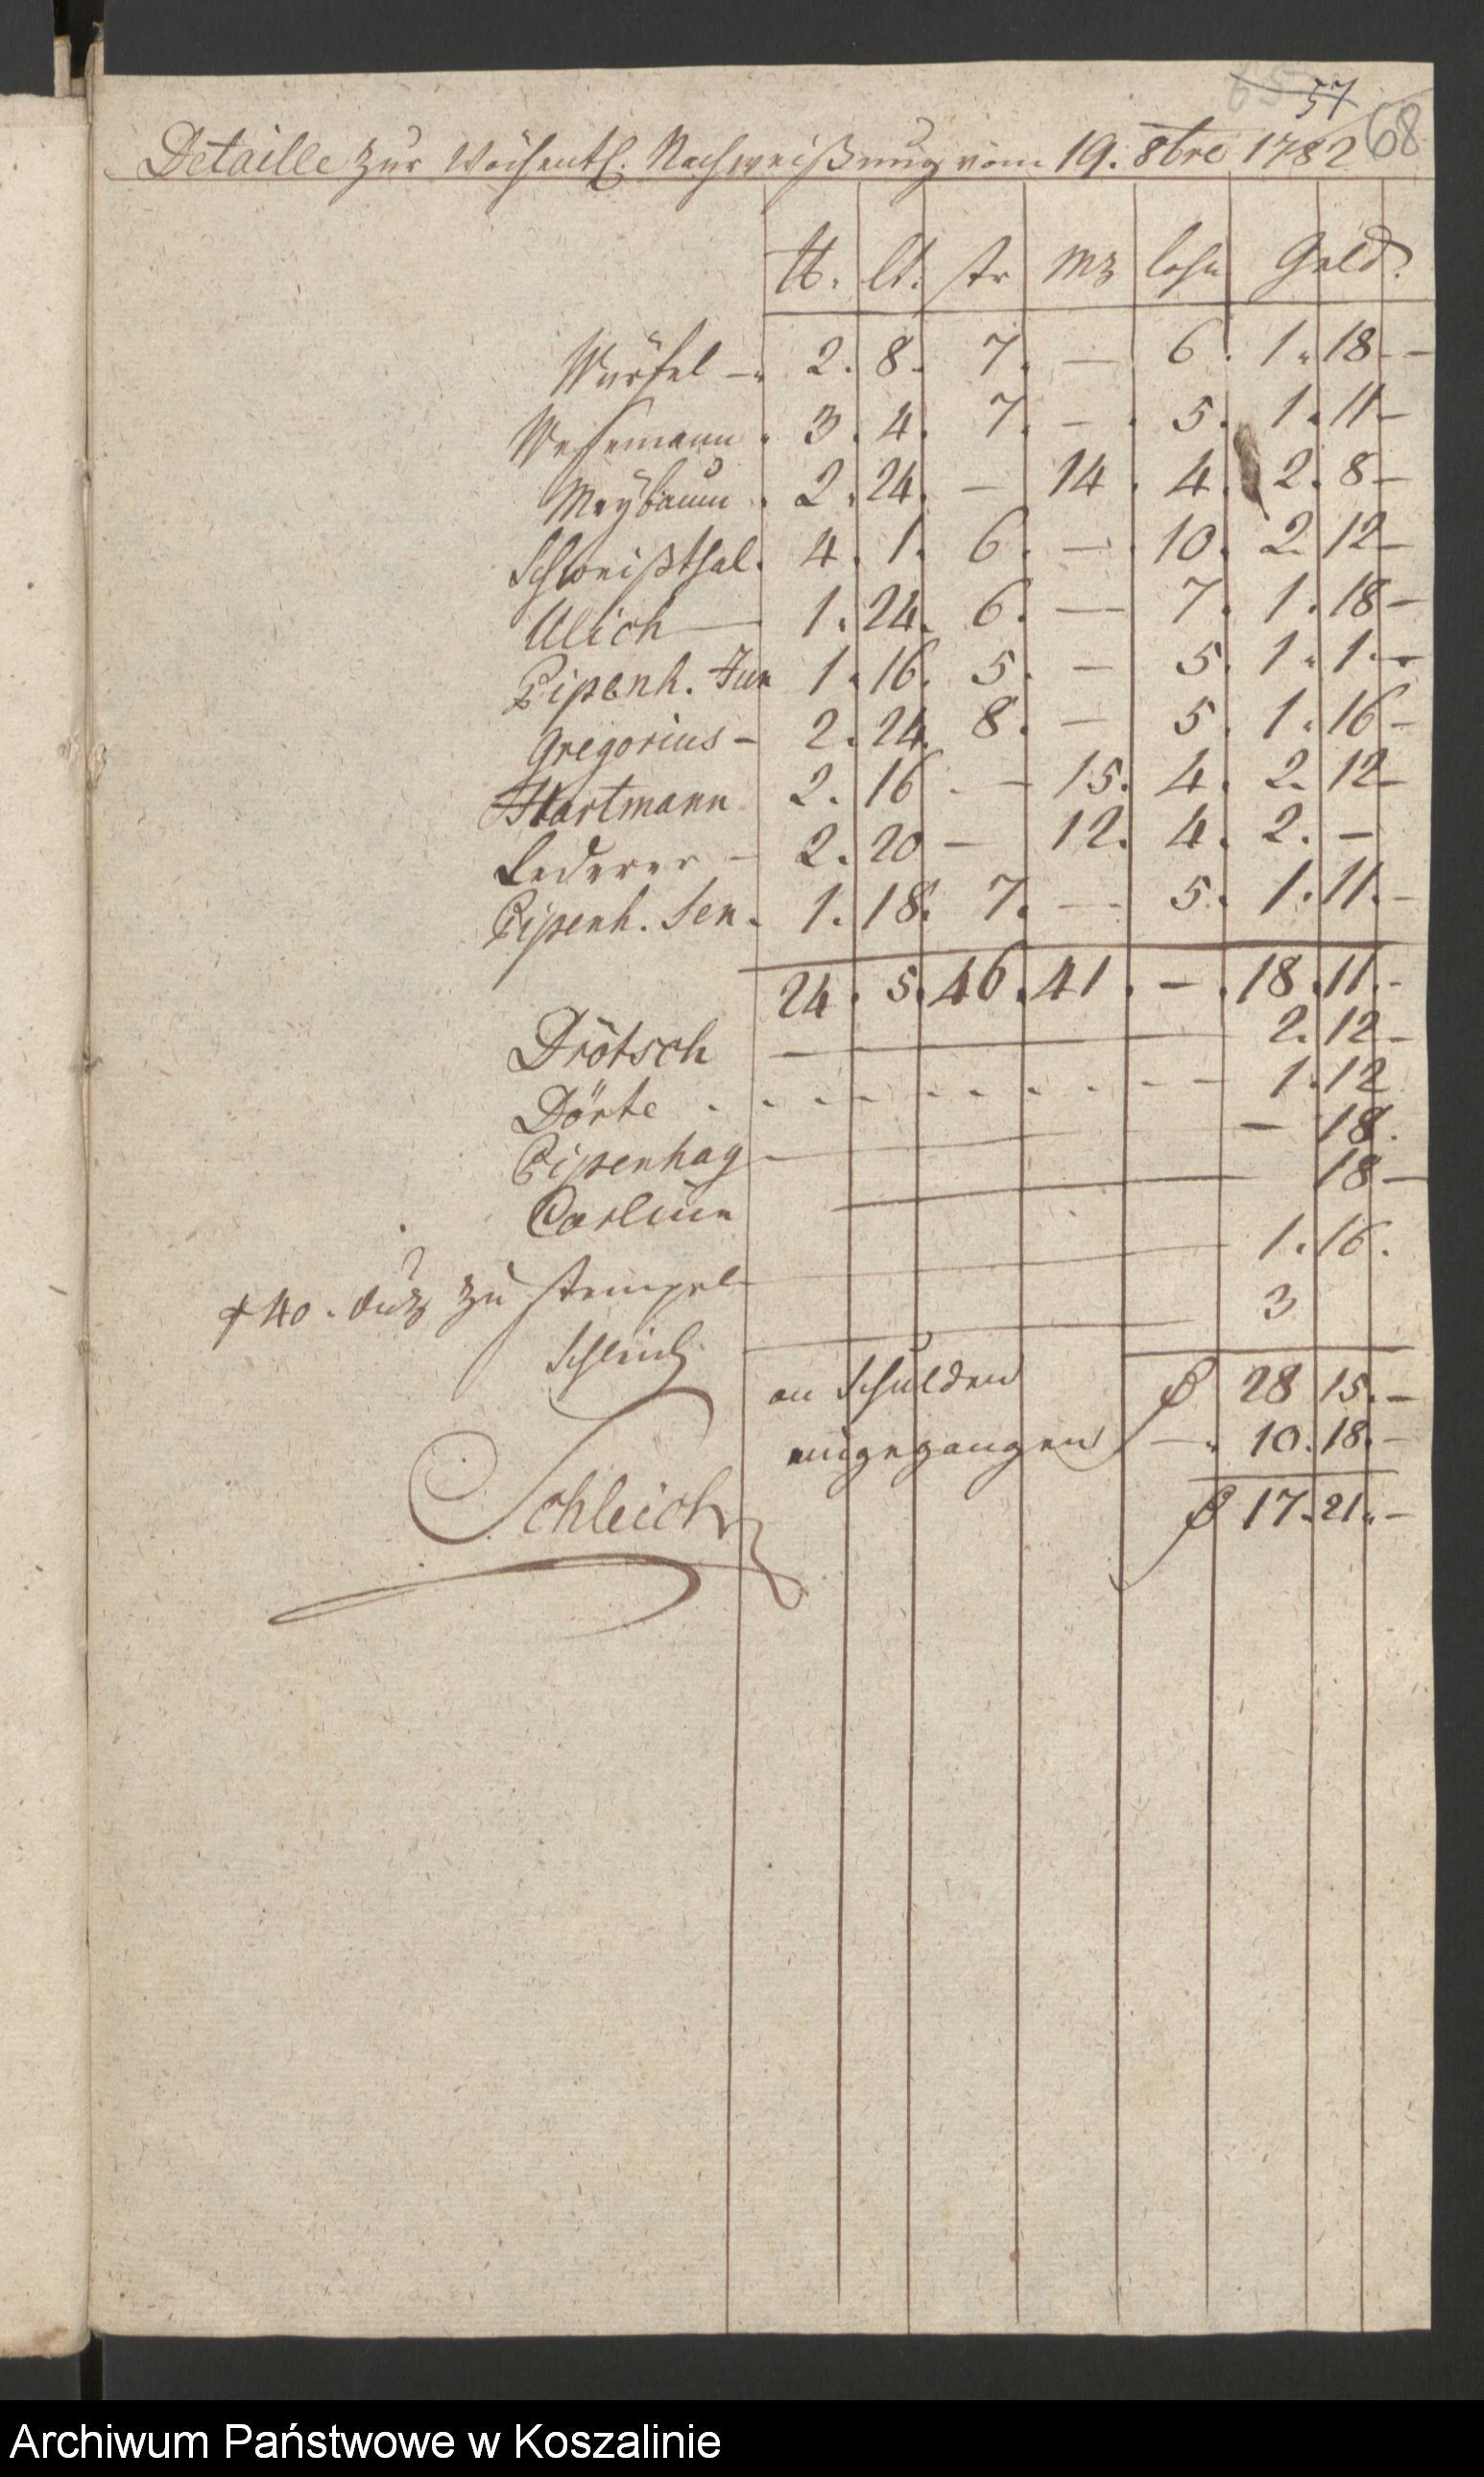 57
68
Detaille zur Wöchentl. Nachweißung vom 19. 8bre 1782
℔. lt. str mz lohn Geld.
Würfel — 2. 8. 7. — 6. 1. 18 —
Wesemann. 3. 4. 7. — 5. 1. 11 —
Meybaum. 2. 24. — 14. 4. 2. 8 —
Schweißthal. 4. 1. 6. — 10. 2. 12 —
Ulich — 1. 24. 6. — 7. 1. 18 —
Pipenh. Jun 1. 16. 5. — 5. 1. 1. —
Gregorius — 2. 24. 8. — 5. 1. 16 —
Hartmann 2. 16. — 15. 4. 2. 12 —
Lederer — 2. 20 — 12. 4. 2. —
Pipenh. Sen. 1. 18. 7. — 5. 1. 11. —
24. 5. 46. 41. — . 18. 11. —
Drötsch — 2. 12 —
Dörte . . . . . . . . — — 1. 12
Pipenhag — — 18.
Carline — 18 —
40. zu stempel — 1. 16.
Schleich 3
an Schulden 28 15. —
eingegangen — . 10. 18. —
Schleich
17. 21. —
Archiwum Państwowe w Koszalinie